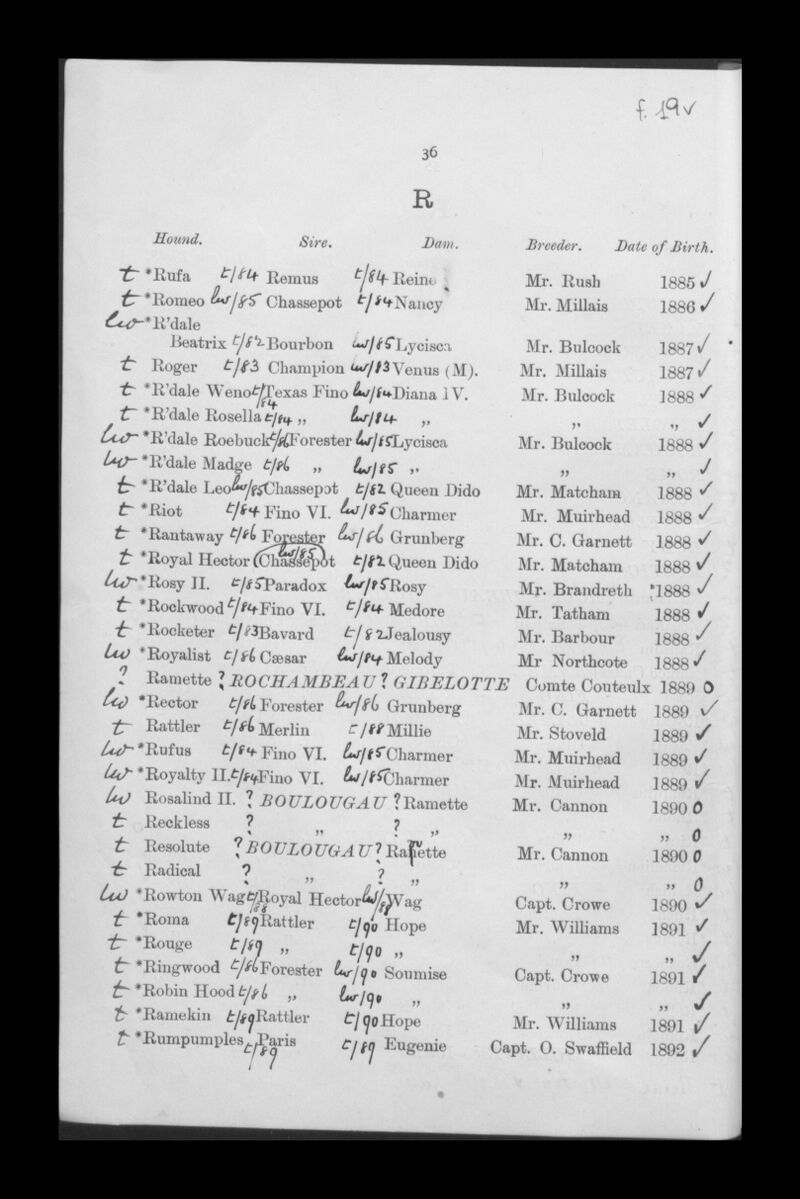 f. 19v
36
R
Hound. Sire. Dam. Breeder. Date of Birth.
t *Rufa t/84 Remus t/84 Reine Mr. Rush 1885 ✓
t *Romeo lw/85 Chassepot t/84 Nancy Mr. Millais 1886 ✓
lw *R'dale
Beatrix t/82 Bourbon lw/85 Lycisca Mr. Bulcock 1887 ✓
t Roger t/83 Champion lw/83 Venus (M). Mr. Millais 1887 ✓
t *R'dale Weno t/84 Texas Fino lw/84 Diana IV. Mr. Bulcock 1888 ✓
t *R'dale Rosella t/84 „ lw/84 „ „ „ ✓
lw *R'dale Roebuck t/86 Forester lw/85 Lycisca Mr. Bulcock 1888 ✓
lw *R'dale Madge t/86 „ lw/85 „ „ „ ✓
t *R'dale Leo lw/85 Chassepot t/82 Queen Dido Mr. Matcham 1888 ✓
t *Riot t/84 Fino VI. lw/85 Charmer Mr. Muirhead 1888 ✓
t *Rantaway t/86 Forester lw/86 Grunberg Mr. C. Garnett 1888 ✓
t *Royal Hector (Chassepot lw/85 t/82 Queen Dido Mr. Matcham 1888 ✓
lw *Rosy II. t/85 Paradox lw/85 Rosy Mr. Brandreth 1888 ✓
t *Rockwood t/84 Fino VI. t/84 Medore Mr. Tatham 1888 ✓
t *Rocketer t/83 Bavard t/82 Jealousy Mr. Barbour 1888 ✓
lw *Royalist t/86 Cæsar lw/84 Melody Mr Northcote 1888 ✓
? Ramette ? ROCHAMBEAU ? GIBELOTTE Comte Couteulx 1889 0
lw *Rector t/86 Forester lw/86 Grunberg Mr. C. Garnett 1889 ✓
t Rattler t/86 Merlin t/88 Millie Mr. Stoveld 1889 ✓
lw *Rufus t/84 Fino VI. lw/85 Charmer Mr. Muirhead 1889 ✓
lw *Royalty II. t/84 Fino VI. lw/85 Charmer Mr. Muirhead 1889 ✓
lw Rosalind II. ? BOULOUGAU ? Ramette Mr. Cannon 1890 0
t Reckless ? „ ? „ „ „ 0
t Resolute ? BOULOUGAU ? Ramette Mr. Cannon 1890 0
t Radical ? „ ? „ „ „ 0
lw *Rowton Wag t/88 Royal Hector lw/88 Wag Capt. Crowe 1890 ✓
t *Roma t/89 Rattler t/90 Hope Mr. Williams 1891 ✓
t *Rouge t/89 „ t/90 „ „ „ ✓
t *Ringwood t/86 Forester lw/90 Soumise Capt. Crowe 1891 ✓
t *Robin Hood t/86 „ lw/90 „ „ „ ✓
t *Ramekin t/89 Rattler t/90 Hope Mr. Williams 1891 ✓
t *Rumpumples t/89 Paris t/89 Eugenie Capt. O. Swaffield 1892 ✓